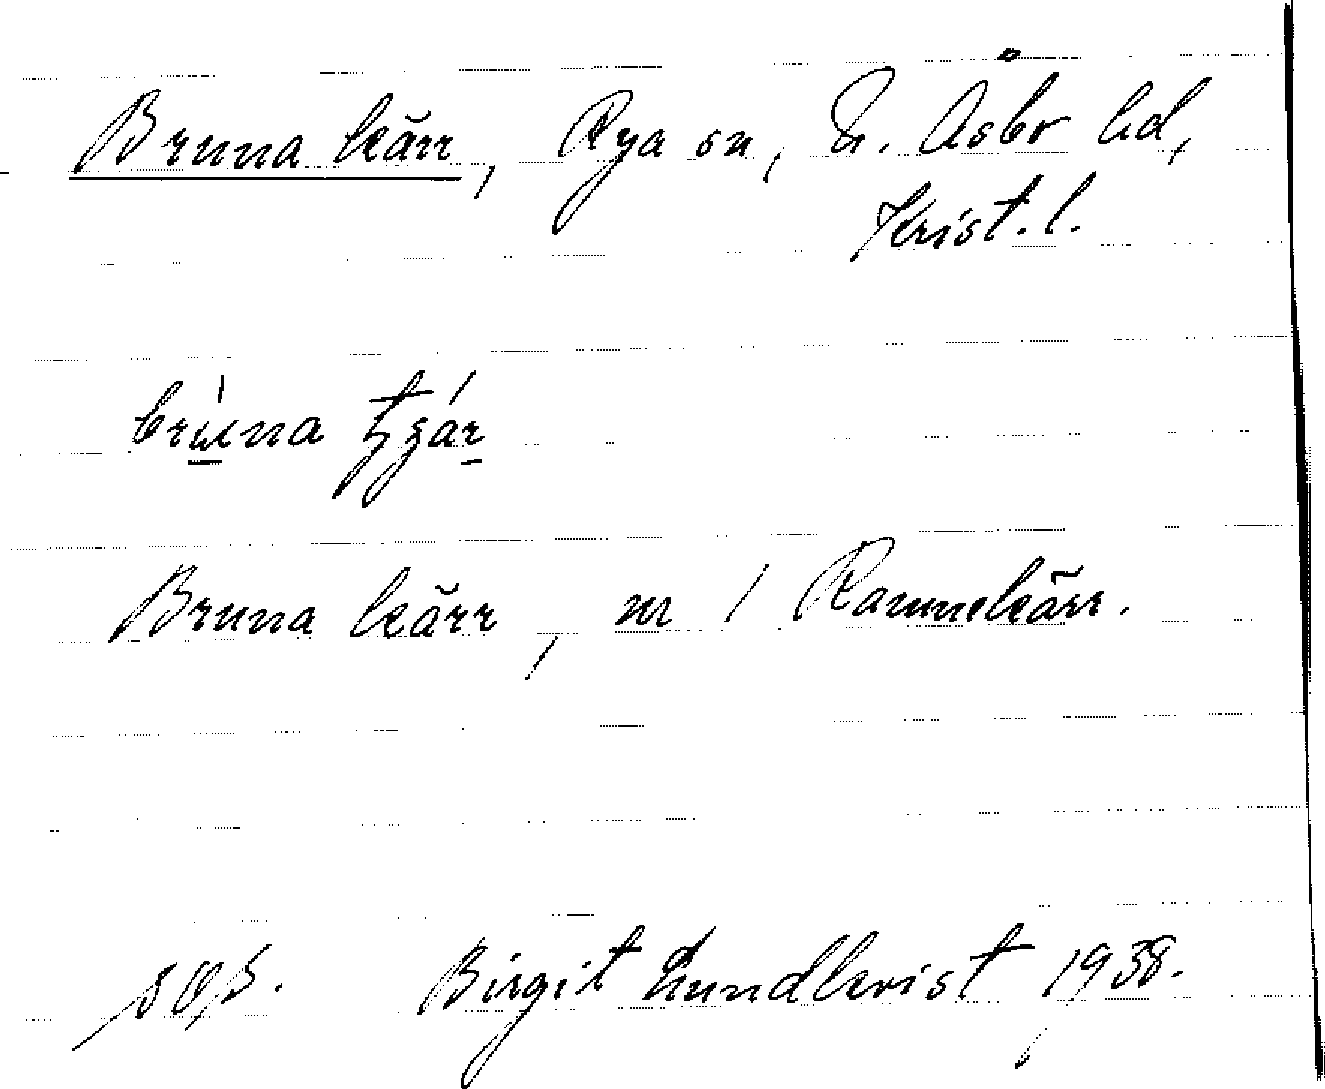 Bruna kärr, Rya sn, N. Åsbo hd,
Krist. l.
Bruna kärr, nr 1 Ramnekärr.
Birgit Lundkvist, 1938.